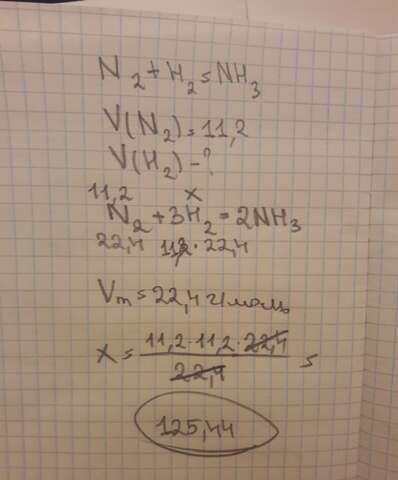 N2 + H2 = NH3
V(N2) = 11,2
V(H2) - ?
11,2 x
N2 + 3H2 = 2NH3
22,4 · 22,4
Vm = 22,4 г/моль
x = 11,2 · 11,2 · 22,4 =
22,4
125,44